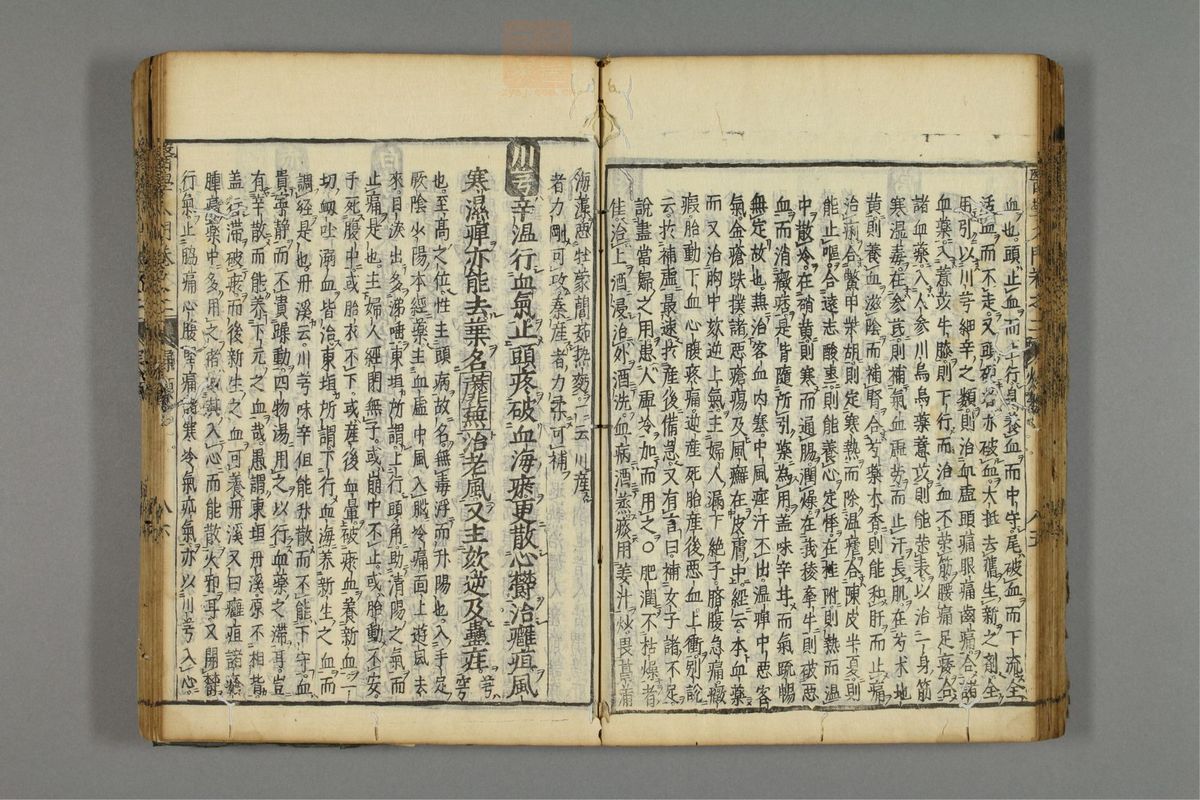 血也。頭止血而上行身養血而中守。尾破血而下流。全
活血而不走。又酒炒治赤破血。大抵去舊生新之劑。全
用引以川芎細辛之類則治血虛頭痛眼痛齒痛。合諸
血藥入薏苡牛膝則下行而治血不榮筋腰痛足疼。合
諸血藥入人參川烏烏藥薏苡則能榮表以治一身筋
寒濕毒。在參芪則補氣血虛勞而止汗長肌在芍朮地
黃則養血滋陰而補腎合芍藥木香則能和肝而止痛
治痢合鱉甲柴胡則定寒熱而除溫瘧合陳皮半夏則
能止嘔合遠志酸棗則能養心定悸。在桂附則熱而溫
中散冷。在硝黃則寒而通腸潤燥在莪稜牽牛則破惡
血而消癥痞。是皆隨所引藥為用。蓋味辛甘而氣疏暢
無定故也。無治客血內塞。中風痙汗不出。溫痺中惡客
氣。金瘡跌撲諸惡瘡瘍及風癬在皮膚中。經云。本血藥
而又治胸中欬逆上氣主婦人漏下絕子。臍腹急痛。癥
瘕胎動下血心腹疼痛逆產死胎產後惡血上衝。別說
云於補虛最速於產後備急。又有言曰。補女子諸不足
說盡當歸之用患人虛冷加而用之○肥潤不枯燥者
佳。治上酒浸治外酒洗。血病酒蒸痰用姜汁炒。畏菖蒲
海藻濕麪牡蒙蘆茹熱麪。一云川產
者力剛可攻秦產者力柔可補。
川芎辛溫行血氣止頭疼破血海瘀更散心欝治癰疽風
寒濕痺亦能去葉名蘼蕪治老風又主欬逆及蠱疰。芎穹
也。至高之位性主頭病故名。無毒浮而升陽也。入手足
厥陰少陽本經藥主血虛中風入腦冷痛面上遊風去
來。目淚出多涕唾東垣所謂上行頭角助清陽之氣而
止痛是也。主婦人經閉無子。或崩中不止。或胎動不安
手死腹中或胎衣不下。或產後血暈破瘀血養新血一
切衂吐溺血皆治東垣所謂下行血海養新生之血而
調經是也。丹溪云。川芎味辛但能升散而不能下守。血
貴寧靜而不貴躁動。四物湯。用之以行血藥之滯耳豈
有辛散而能養下元之血哉。愚謂東垣丹溪原不相背
蓋行滯破瘀而後新生之血可養丹溪又曰癰疽諸瘡
腫痛藥中多用之者以其入心而能散火邪耳又開欝
行氣止脇痛心腹堅痛諸寒冷氣疝氣亦以川芎入心。